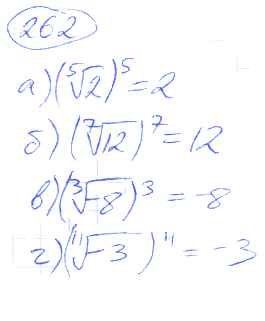 262
а) (⁵√2)⁵ = 2
б) (⁷√12)⁷ = 12
в) (³√-8)³ = -8
г) (¹¹√-3)¹¹ = -3